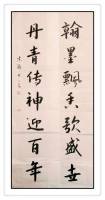 翰墨飘香歌盛世
丹青传神迎百年